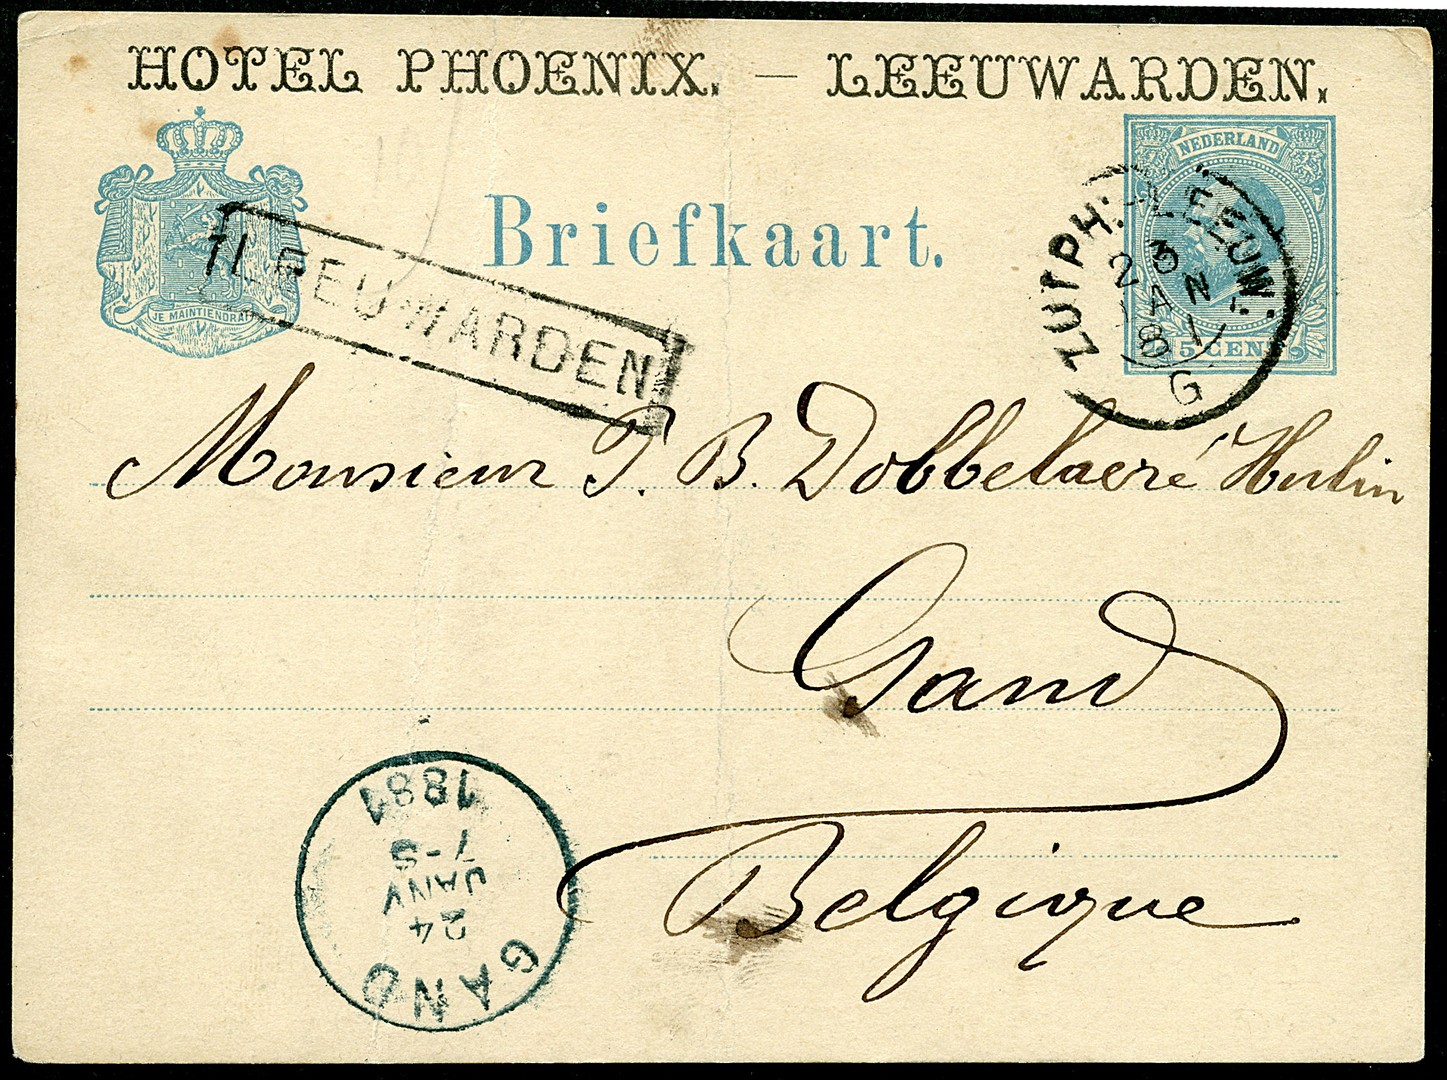 HOTEL PHOENIX. — LEEUWARDEN.
NEDERLAND
Briefkaart.
JE MAINTIENDRAI
LEEUWARDEN
ZUTPH: LEEUW:
JAN
81
G
5 CENT
Monsieur T. B. Dobbelaeré Hulin
Gand
Belgique
GAND
24
JANV
7-S
1881